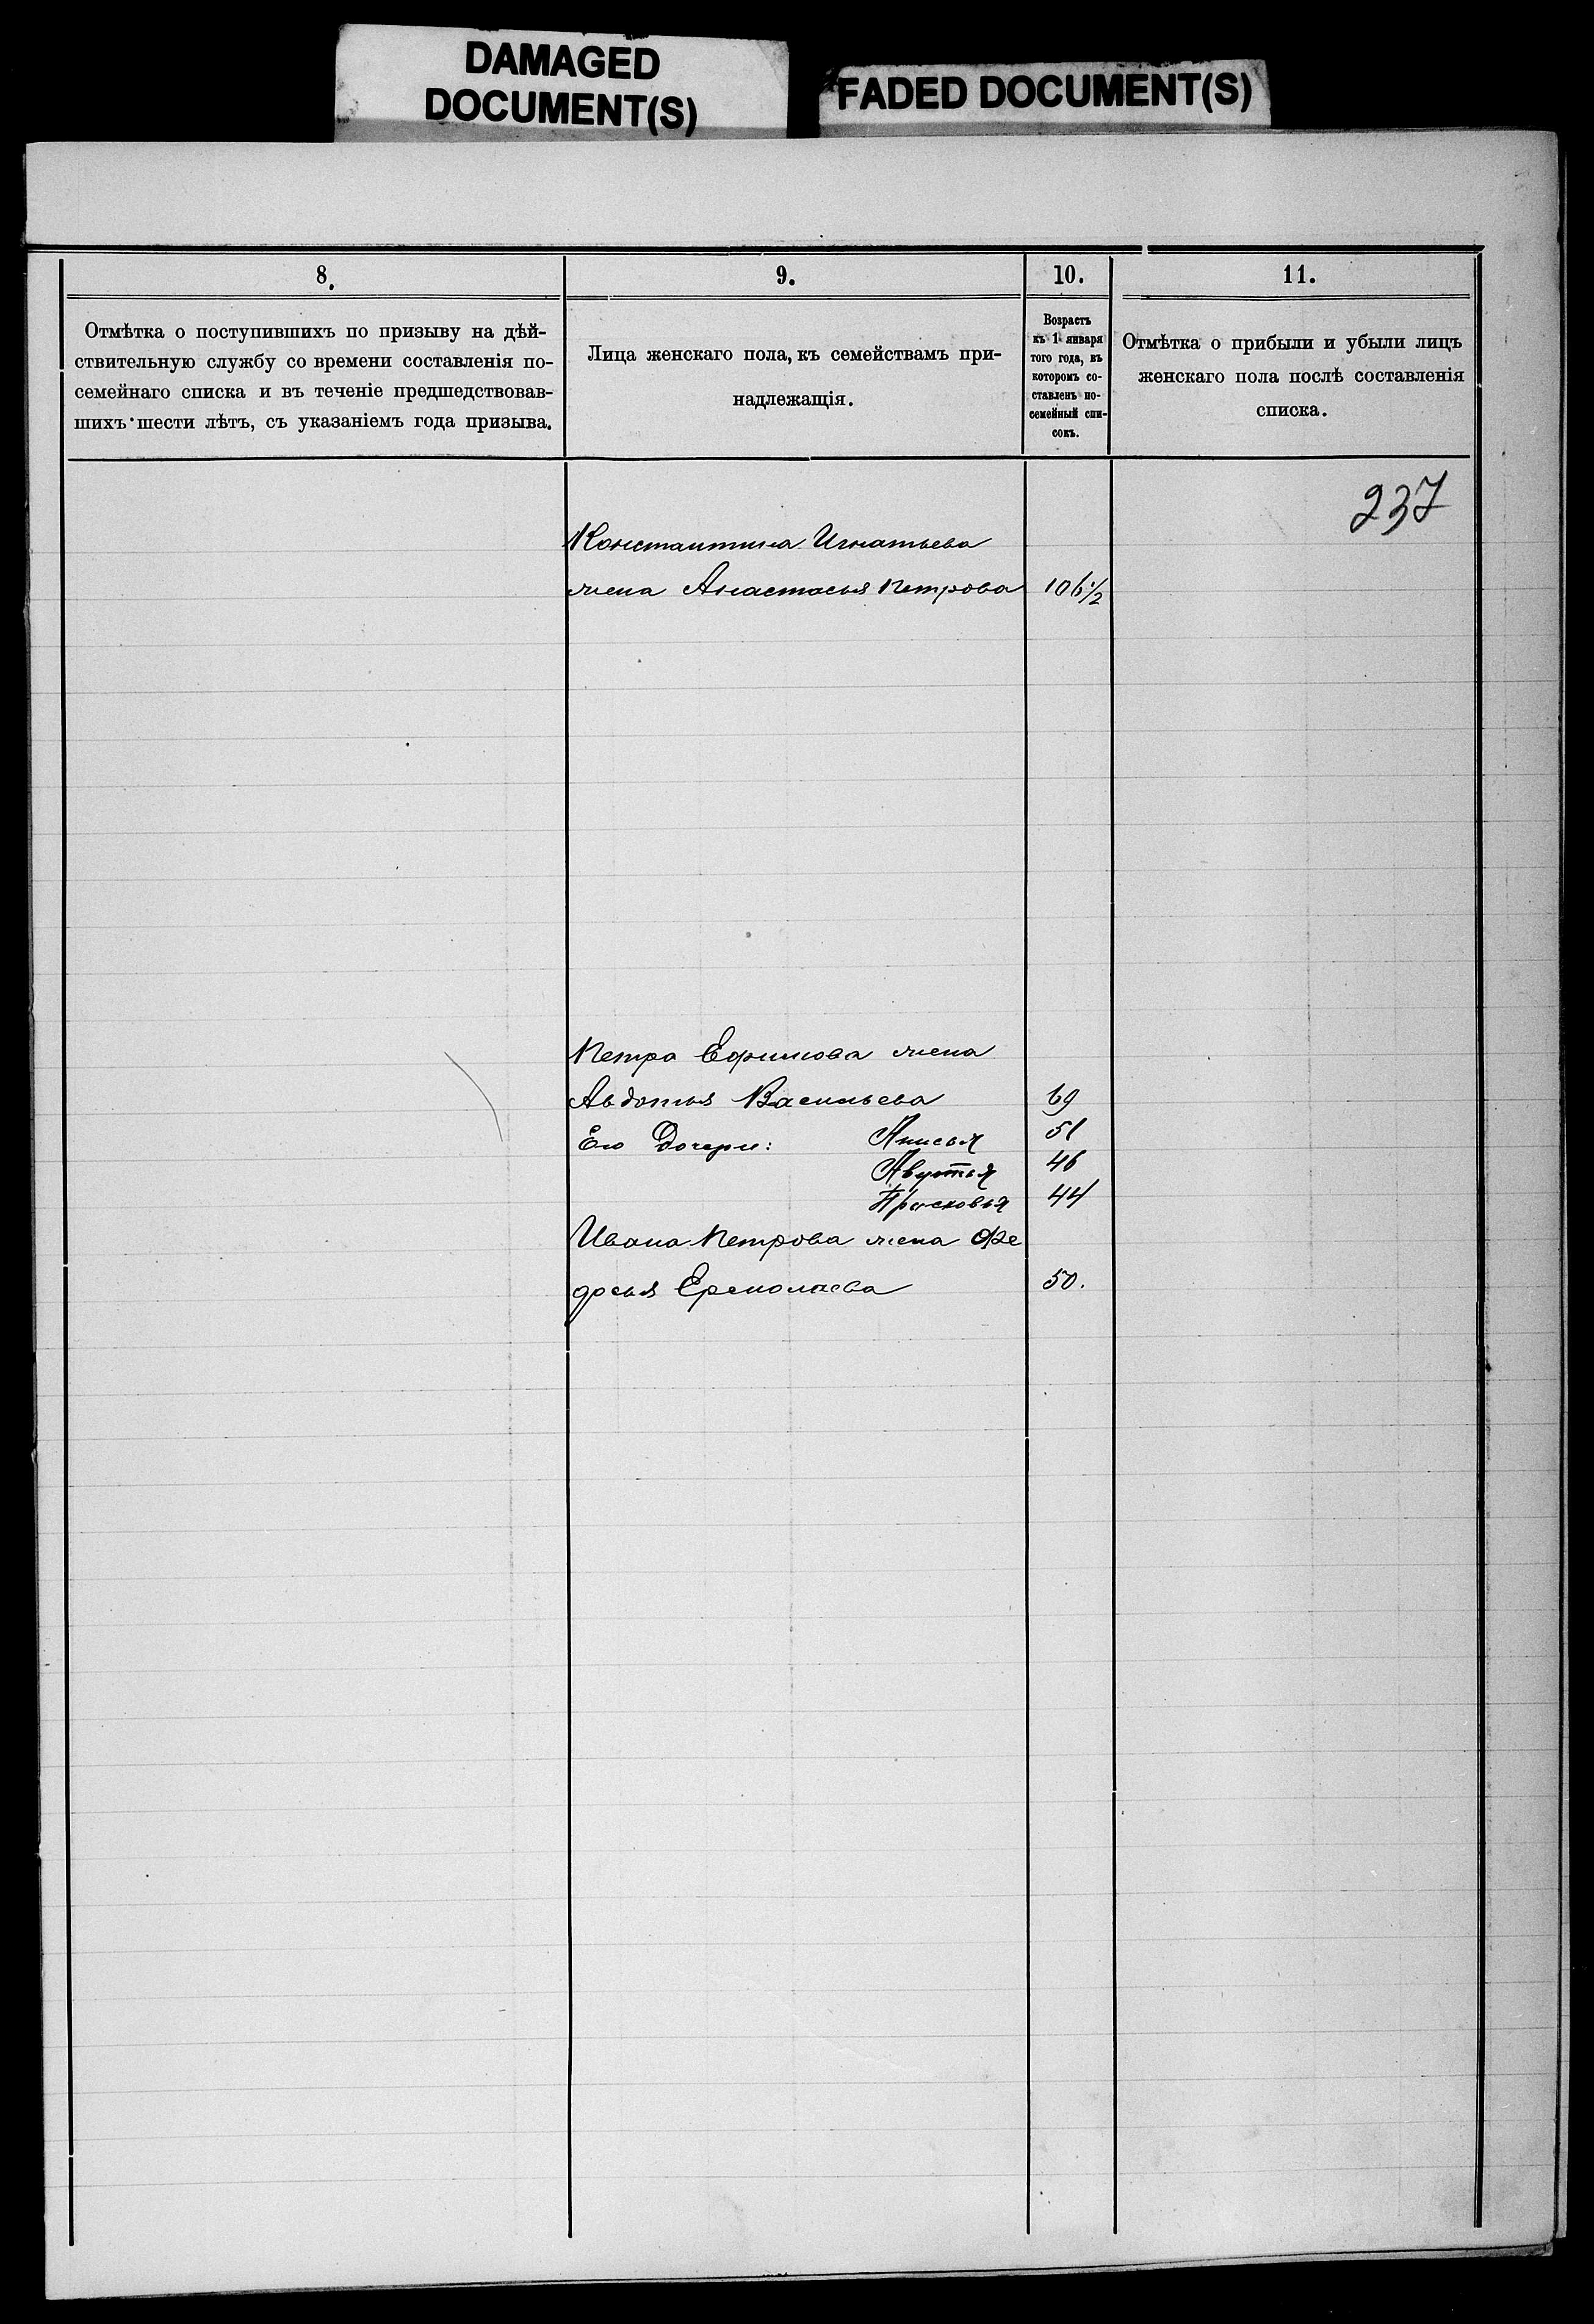 DAMAGED
DOCUMENT(S)
FADED DOCUMENT(S)
8.
9.
10.
11.
Отмѣтка о поступившихъ по призыву на дѣй-
ствительную службу со времени составленія по-
семейнаго списка и въ теченіе предшедствовав-
шихъ шести лѣтъ, съ указаніемъ года призыва.
Лица женскаго пола, къ семействамъ при-
надлежащія.
Возрастъ
къ 1 января
того года, въ
которомъ со-
ставленъ по-
семейный спи-
сокъ.
Отмѣтка о прибыли и убыли лицъ
женскаго пола послѣ составленія
списка.
237
Константина Игнатьева
жена Анастасья Петрова 106 1/2
Петра Ефимова жена
Авдотья Васильева 69
Его Дочери: Анисья 51
46
Прасковья 44
Ивана Петрова жена Фе
досья Ермолаева 50.